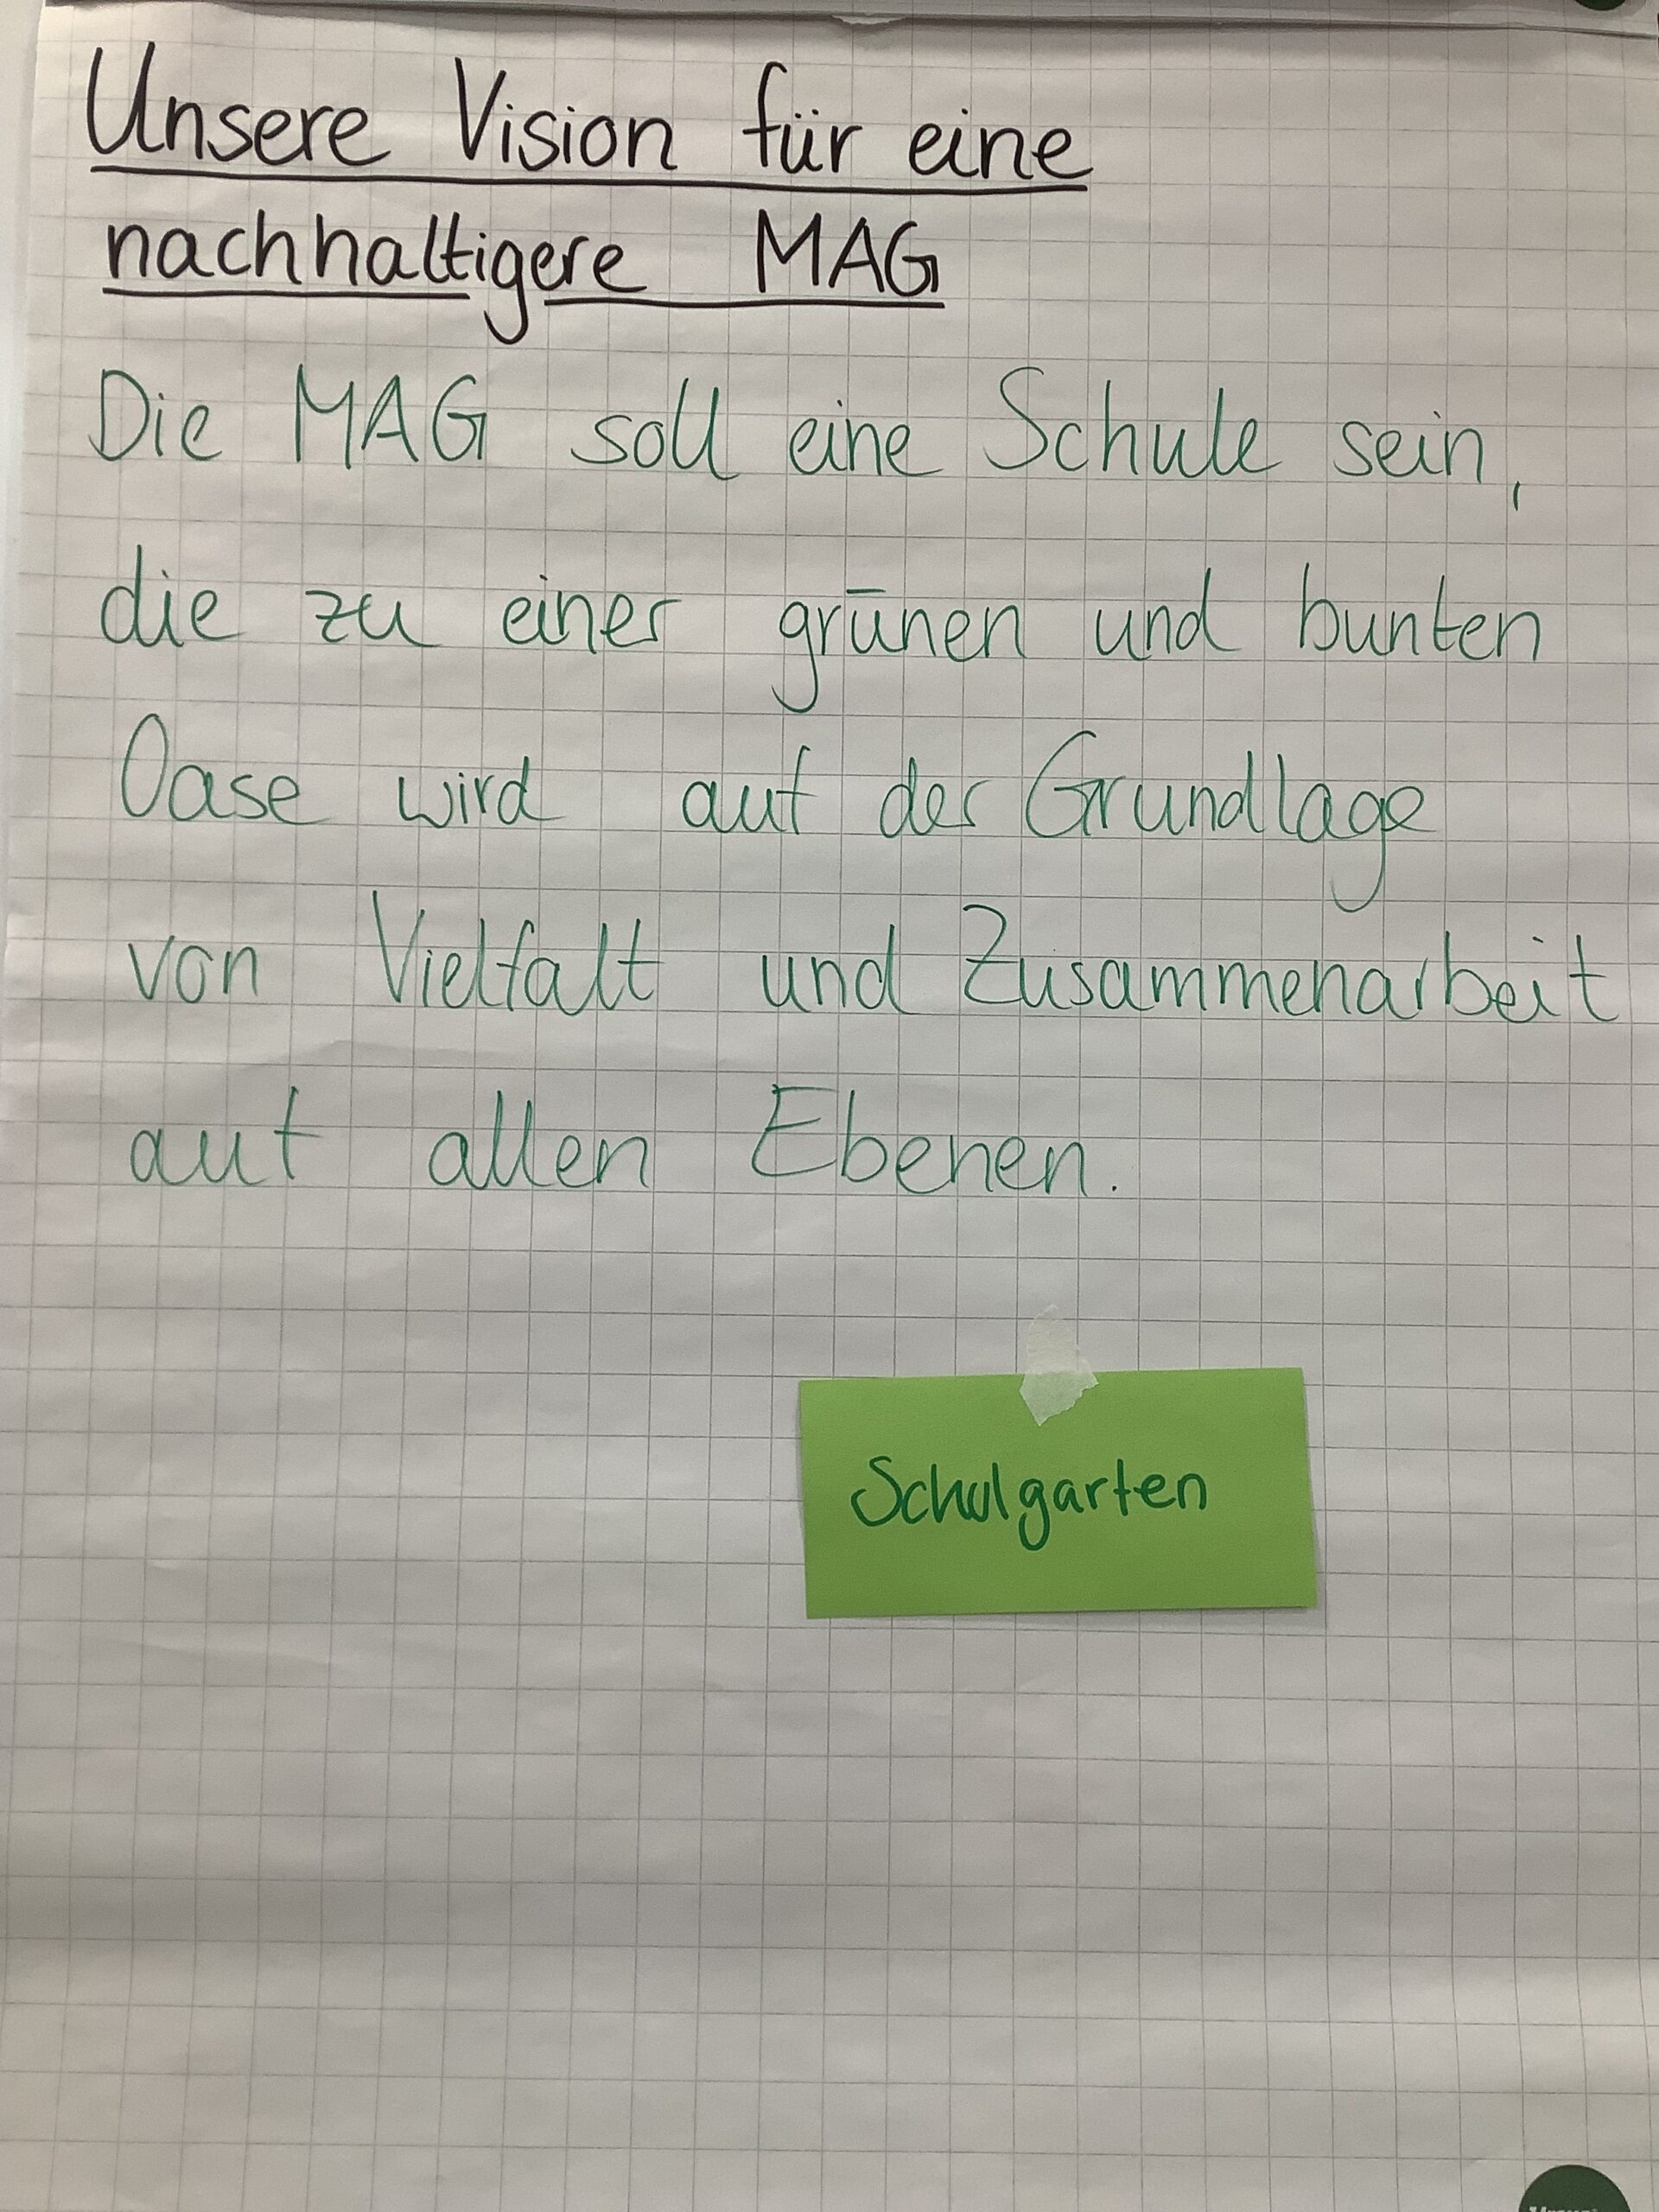 Unsere Vision für eine
nachhaltigere MAG
Die MAG soll eine Schule sein,
die zu einer grünen und bunten
Oase wird auf der Grundlage
von Vielfalt und Zusammenarbeit
auf allen Ebenen.
Schulgarten